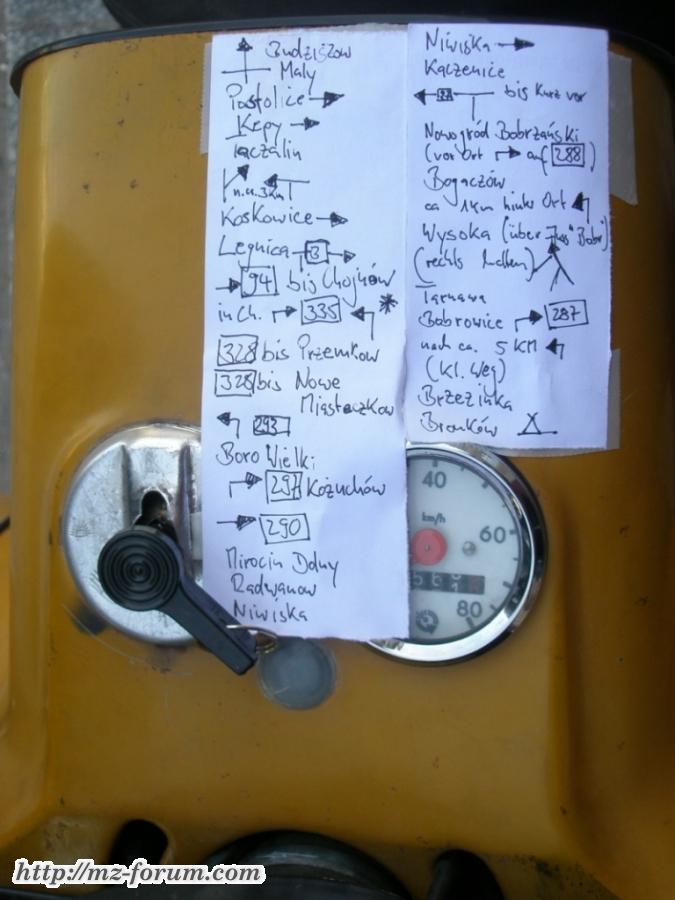 Budziszow
Maly
Postolice
Krpy
Taczalin
n.a. 3km
Koskowice
Legnica 3
94 bis Chojnów
in Ch. 335 *
328 bis Przemkow
328 bis Nowe
Miasteczkow
293
Boro Wielki
297 Kożuchów
290
Mirocin Dolny
Radwanow
Niwiska
Niwiska
Kaczenice
27 bis kurz vor
Nowogród Bobrzański
(vor Ort auf 288)
Bogaczów
ca 1km hinter Ort
Wysoka (über Fluss "Bobr")
(rechts halten)
Tarnawa
Bobrowice 287
nach ca. 5 KM
(kl. Weg)
Brzezinka
Bronków
40
km/h
60
80
http://mz-forum.com